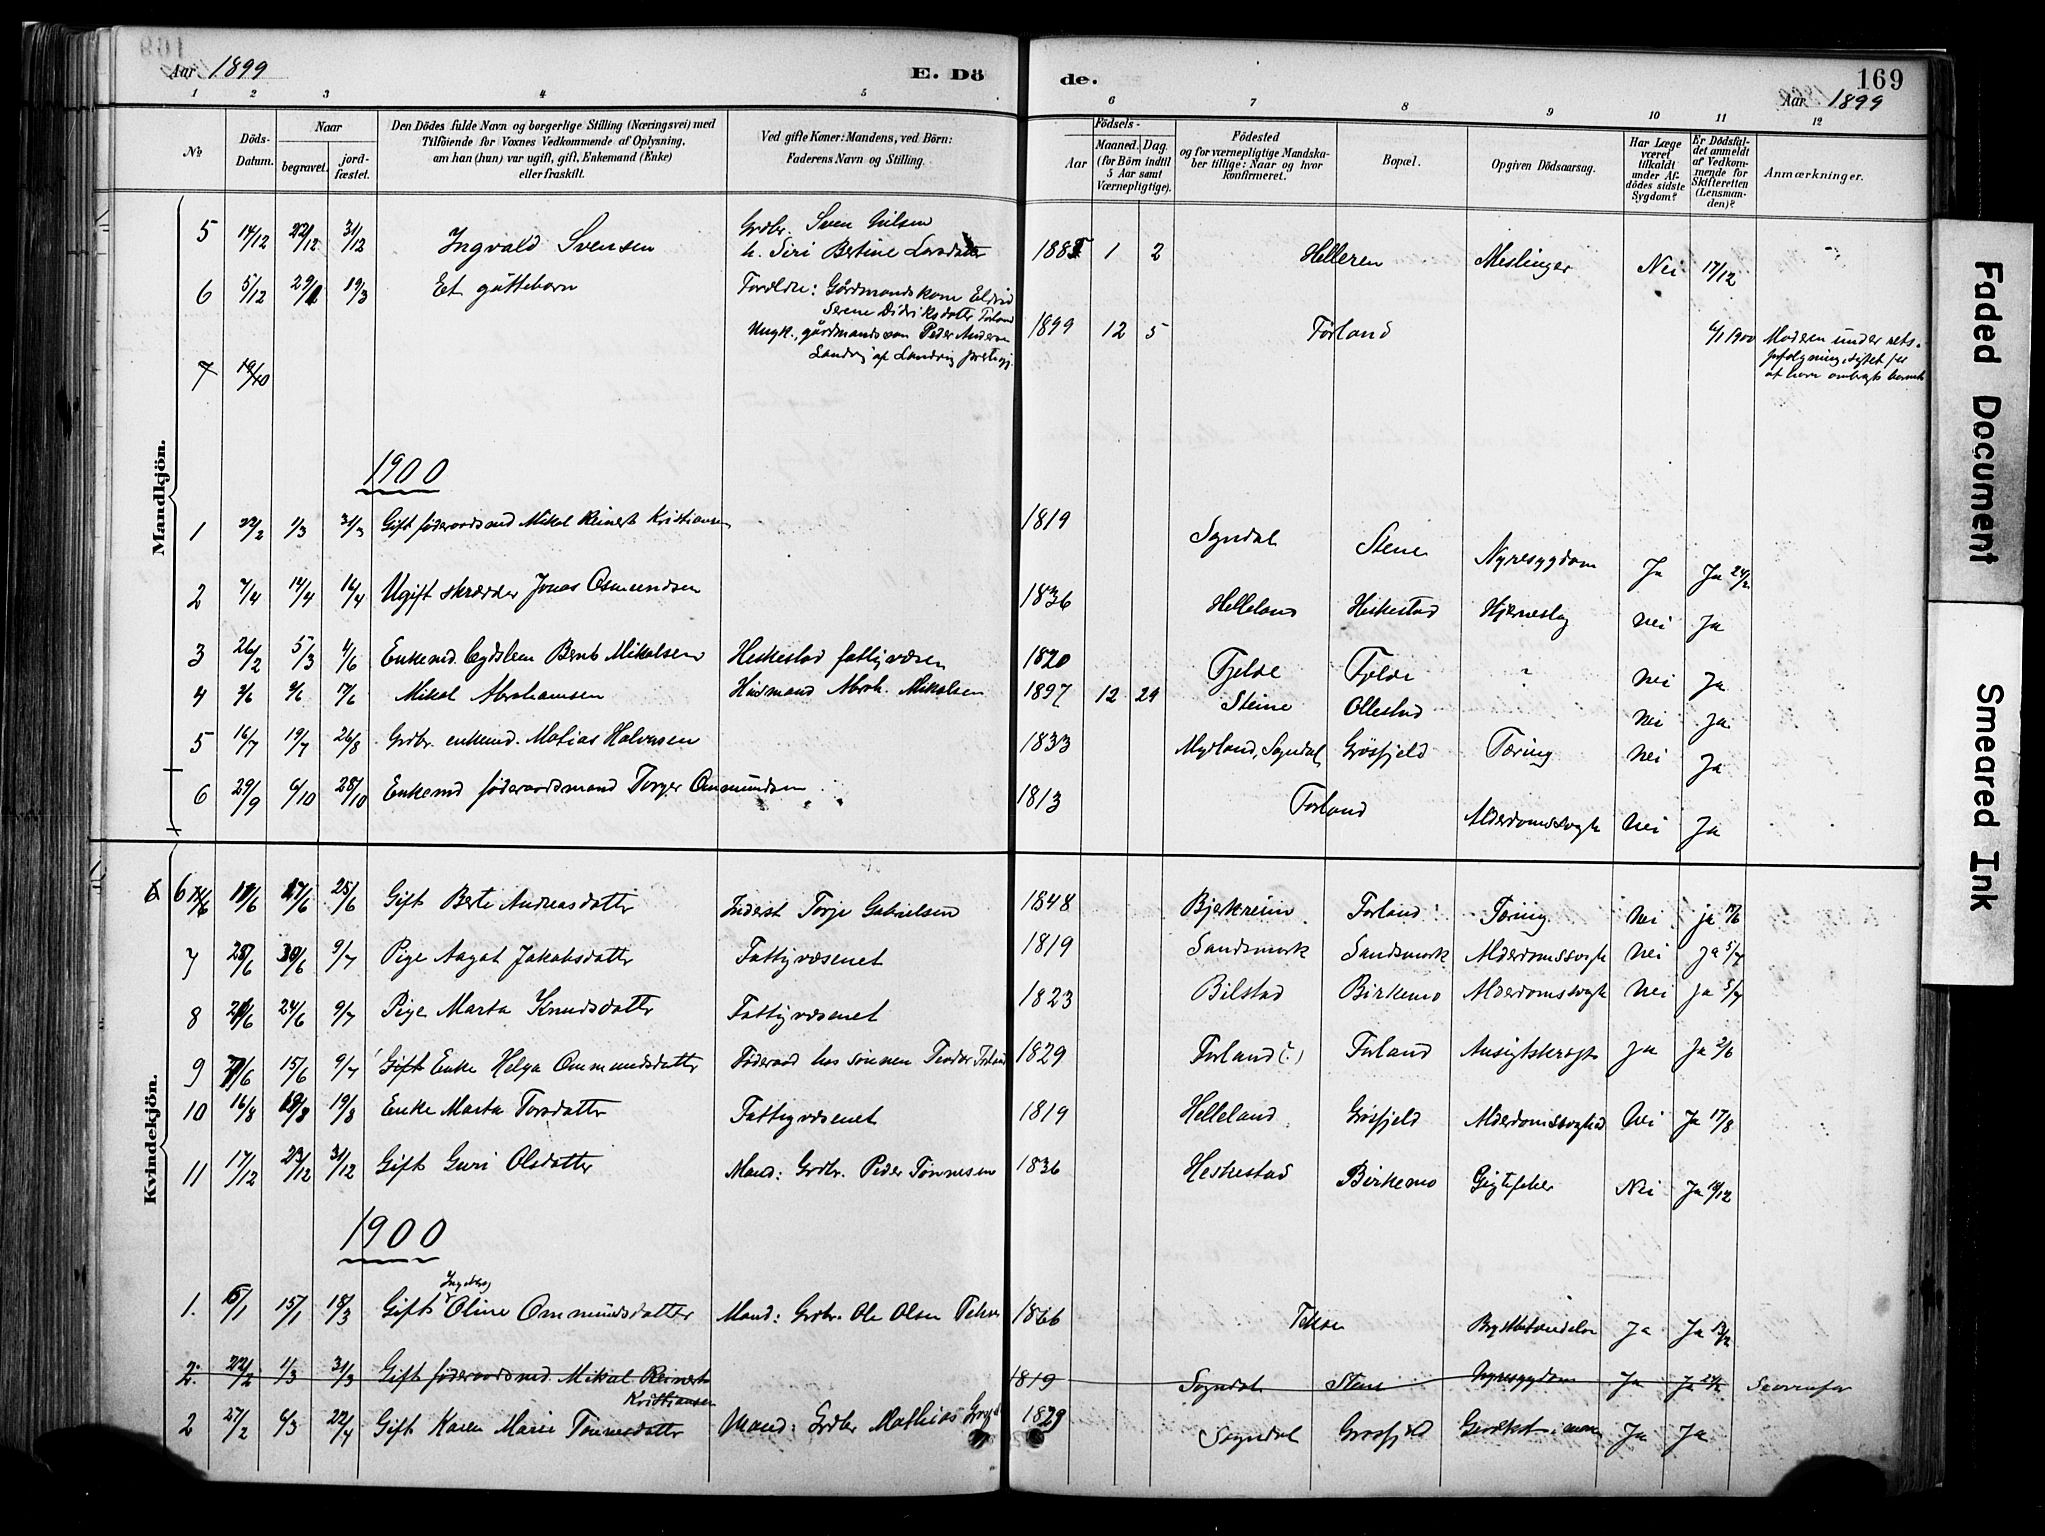 Aar 1899
E. Dö
de.
169
Aar 1899
1 2 3 4 5 6 7 8 9 10 11 12
No
Döds-Datum.
Naar
begravet.
jord-fæstet.
Den Dödes fulde Navn og borgerlige Stilling (Næringsvei) med
Tilföiende for Voxnes Vedkommende af Oplysning,
om han (hun) var ugift, gift, Enkemand (Enke)
eller fraskilt.
Ved gifte Koner: Mandens, ved Börn:
Faderens Navn og Stilling.
Födsels-
Aar
Maaned. Dag.
(for Börn indtil
5 Aar samt
Værnepligtige).
Födested
og for værnepligtige Mandska-
ber tillige: Naar og hvor
konfirmeret.
Bopæl.
Opgiven Dödsaarsag.
Har Læge
været
tilkaldt
under Af-
dödes sidste
Sygdom?
Er Dödsfal-
det anmeldt
af Vedkom-
mende for
Skifteretten
(Lensman-
den)?
Anmærkninger.
Mandkjön.
5 14/12 22/12 31/12 Ingvald Svensen Grdbr. Sven
h. Siri Bertine Larsdatter 1885 1 2 Helleren Meslinger Nei 17/12
6 5/12 19/3 Et guttebarn Forældre: Gårdmandskone
Serene Didriksdatter Førland
Ungk., gårdmandssøn Peder Andersen
1899 12 5 Førland 1900 Moderen under rets-
7 19/10
1900
1 22/2 1/3 31/3 Gift føderaadsmd Mikal Reinert Kristiansen 1819 Sogndal Stene Nyresygdom Ja Ja 24/2
2 7/4 14/4 16/4 Ugift skrædder Jonas Osmundsen 1836 Helleland Heskestad Hjerneslag Nei Ja
3 26/2 5/3 4/6 Enkemd. Bernt Mikalsen Heskestad fattigvæsen 1820 Fjelde Fjelde ? Nei Ja
4 3/6 9/6 17/6 Mikal Abrahamsen Husmand Abrah. Mikalsen 1897 12 29 Steine Ollestad Nei Ja
5 16/7 19/7 26/8 Grdbr. enkemd. Matias Halvorsen 1833 Mydland, Sogndal Grøsfjeld Tæring Nei Ja
6 29/9 6/10 28/10 Enkemd føderaadsmand Torger Ommundsen 1813 Førland Alderdomssvagh Nei Ja
Kvindekjön.
6 11/6 17/6 25/6 Gift Berte Andreasdatter Inderst Torje Gabrielsen 1848 Bjerkreim Førland Tæring Nei ja
7 28/6 30/6 9/7 Pige Aagot Jakobsdatter Fattigvæsenet 1819 Sandsmork Sandsmork Alderdomssvagh Nei Ja 5/7
8 24/6 9/7 Pige Marta Knudsdatter Fattigvæsenet 1823 Bilstad Birkemo Alderdomssvagh Nei Ja 5/7
9 15/6 9/7 Gift Enke Helga Ommundsdatter Føderaad hos sønnen Teodor Førland 1829 Førland(?) Førland Ansigtskræft Ja Ja
10 16/8 19/8 19/8 Enke Marta Torsdatter Fattigvæsenet 1819 Helleland Grøsfjeld Alderdomssvaghed Nei Ja 17/8
11 17/12 23/12 31/12 Gift Guri Olsdatter Mand: Grdbr. Peder Tønnesen 1836 Heskestad Birkemo Gigtfeber Nei Ja 19/12
1900
Ingeborg
1. 15/1 18/3 Gift Oline Ommundsdatter Mand: Grdbr. Ole Olsen 1866 Ja Ja
2. 22/2 1/3 31/3 Gift føderaadsmd. Mikal Reinert
Kristiansen 1819 Sogndal Stene Nyresygdom Ja Ja 24/2
2 27/2 6/3 22/4 Gift Karen Marie Tønnesdatter Mand: Grdbr Mathias 1829 Sogndal Grøsfjeld Ja Ja
Faded Document
Smeared Ink